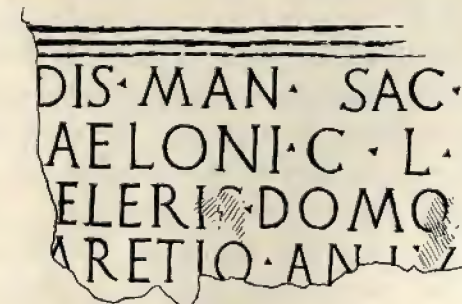 DIS·MAN· SAC·
AELONI·C·L·
ELERIS·DOMO
ARETIO·AN